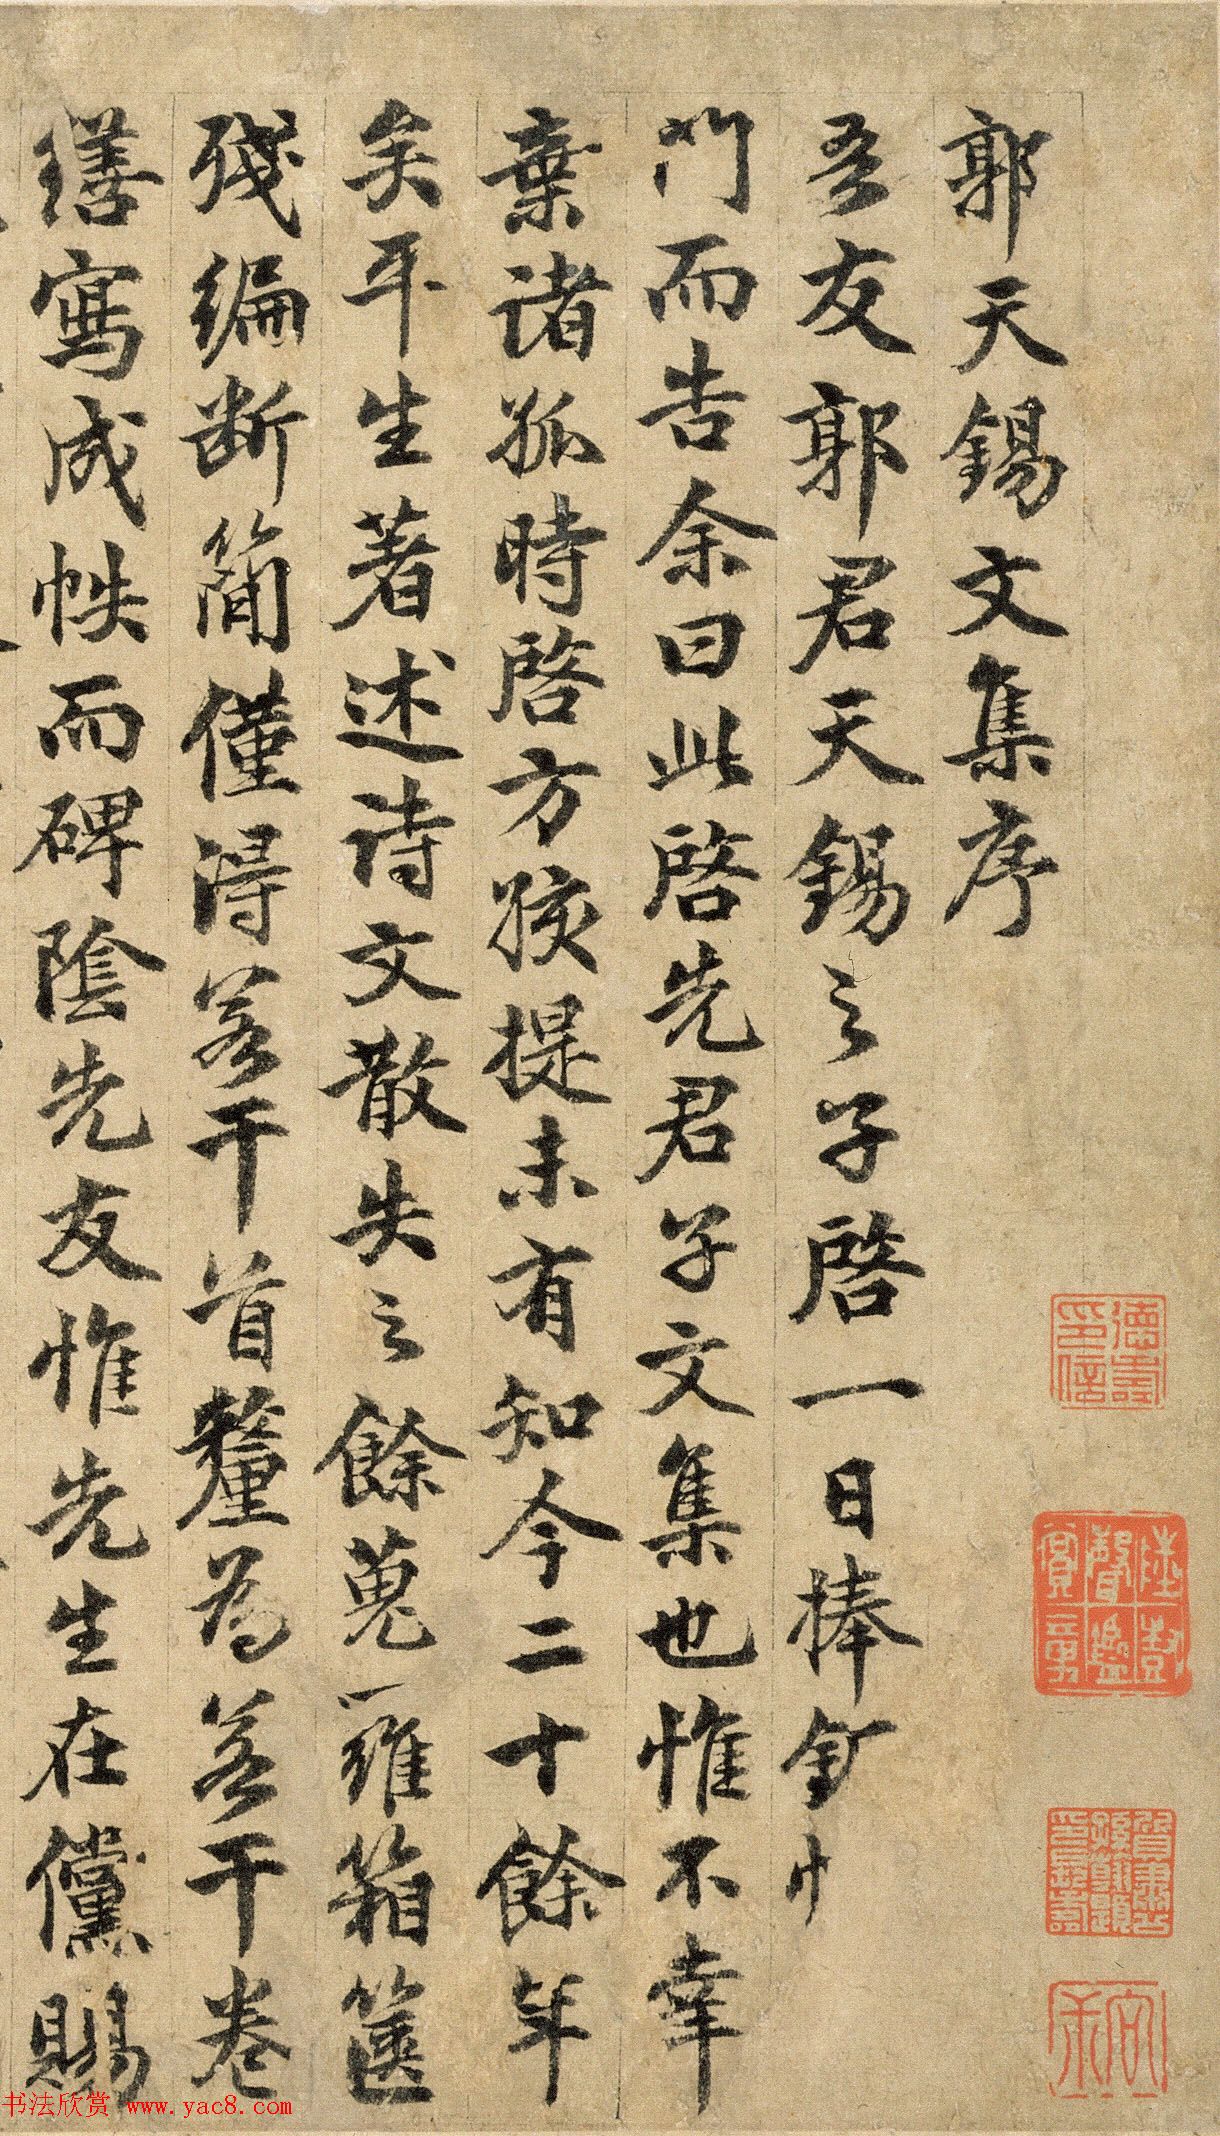 郭天錫文集序
吾友郭君天錫之子啓一日捧
門而告余曰此啓先君子文集也惟不幸
棄諸孤時啓方孩提未有知今二十餘年
矣平生著述詩文散失之餘蒐羅箱篋
殘編斷簡僅得若干首釐為若干卷
繕寫成帙而碑陰先友惟先生在儻賜
德壽印信
书法欣赏 www.yac8.com